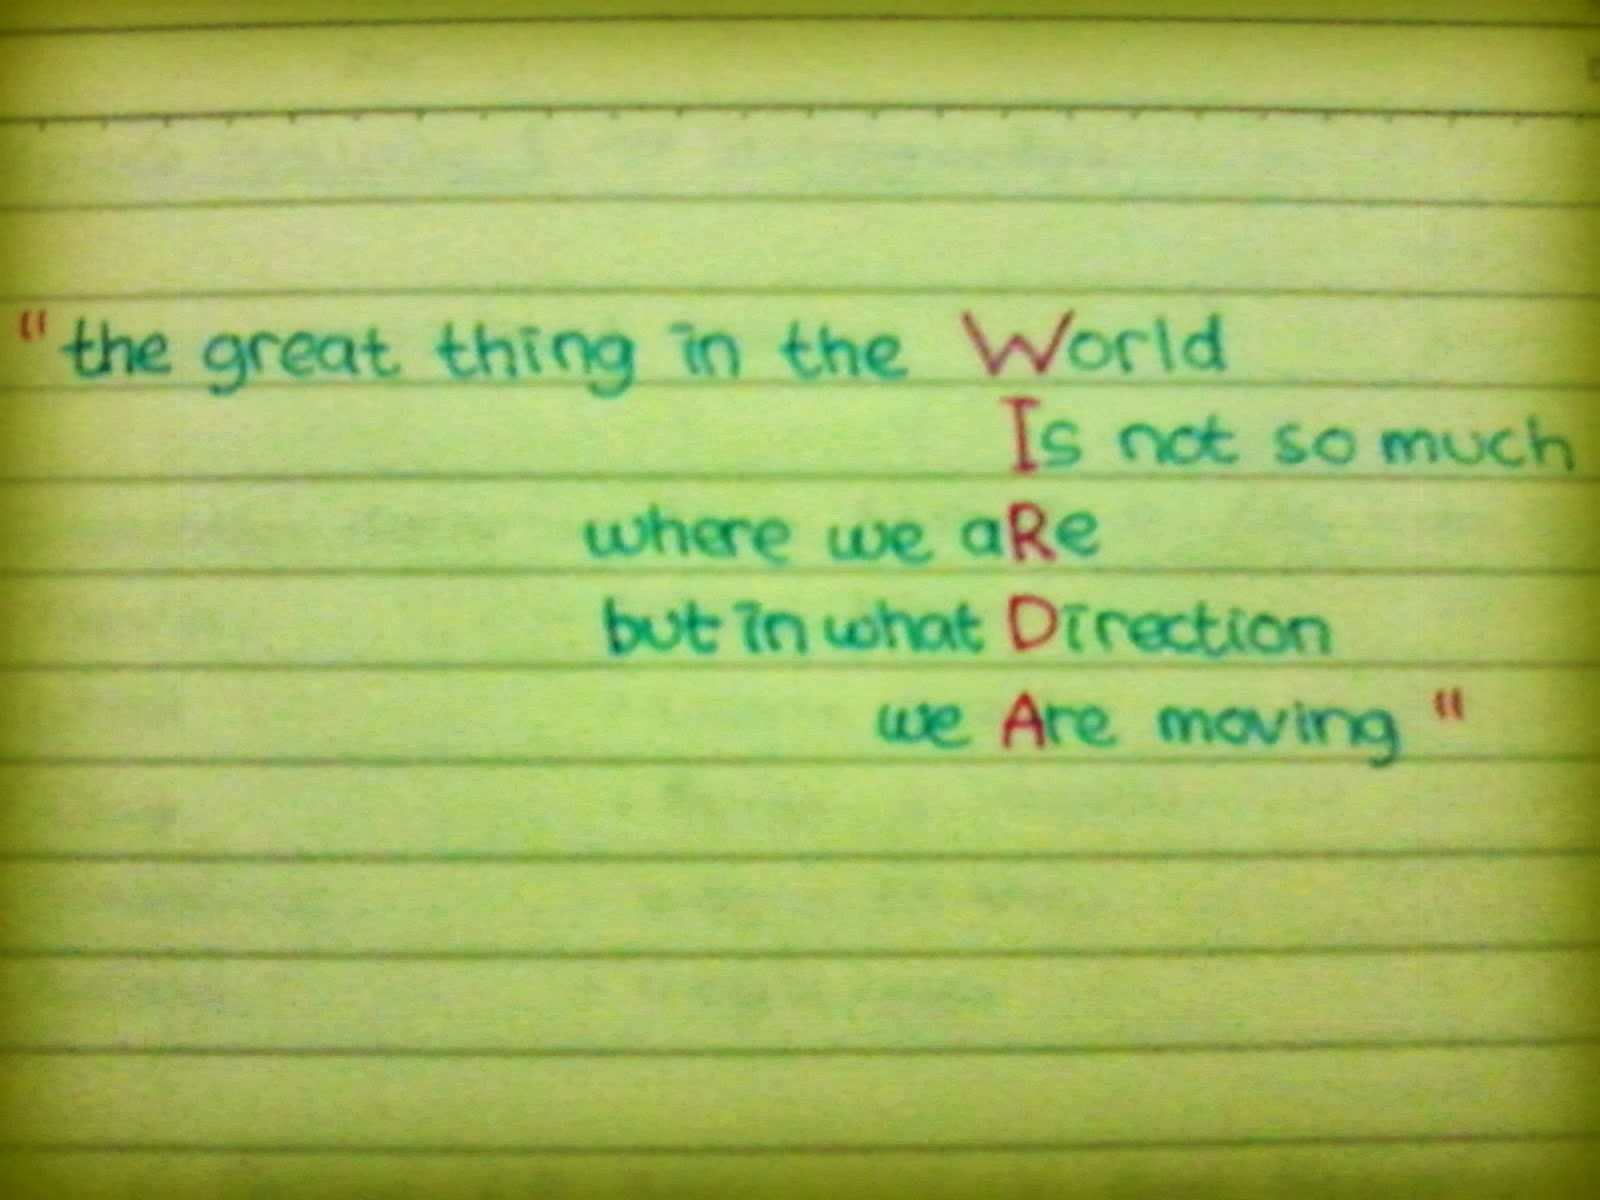 "the great thing in the World
Is not so much
where we aRe
but in what Direction
we Are moving"